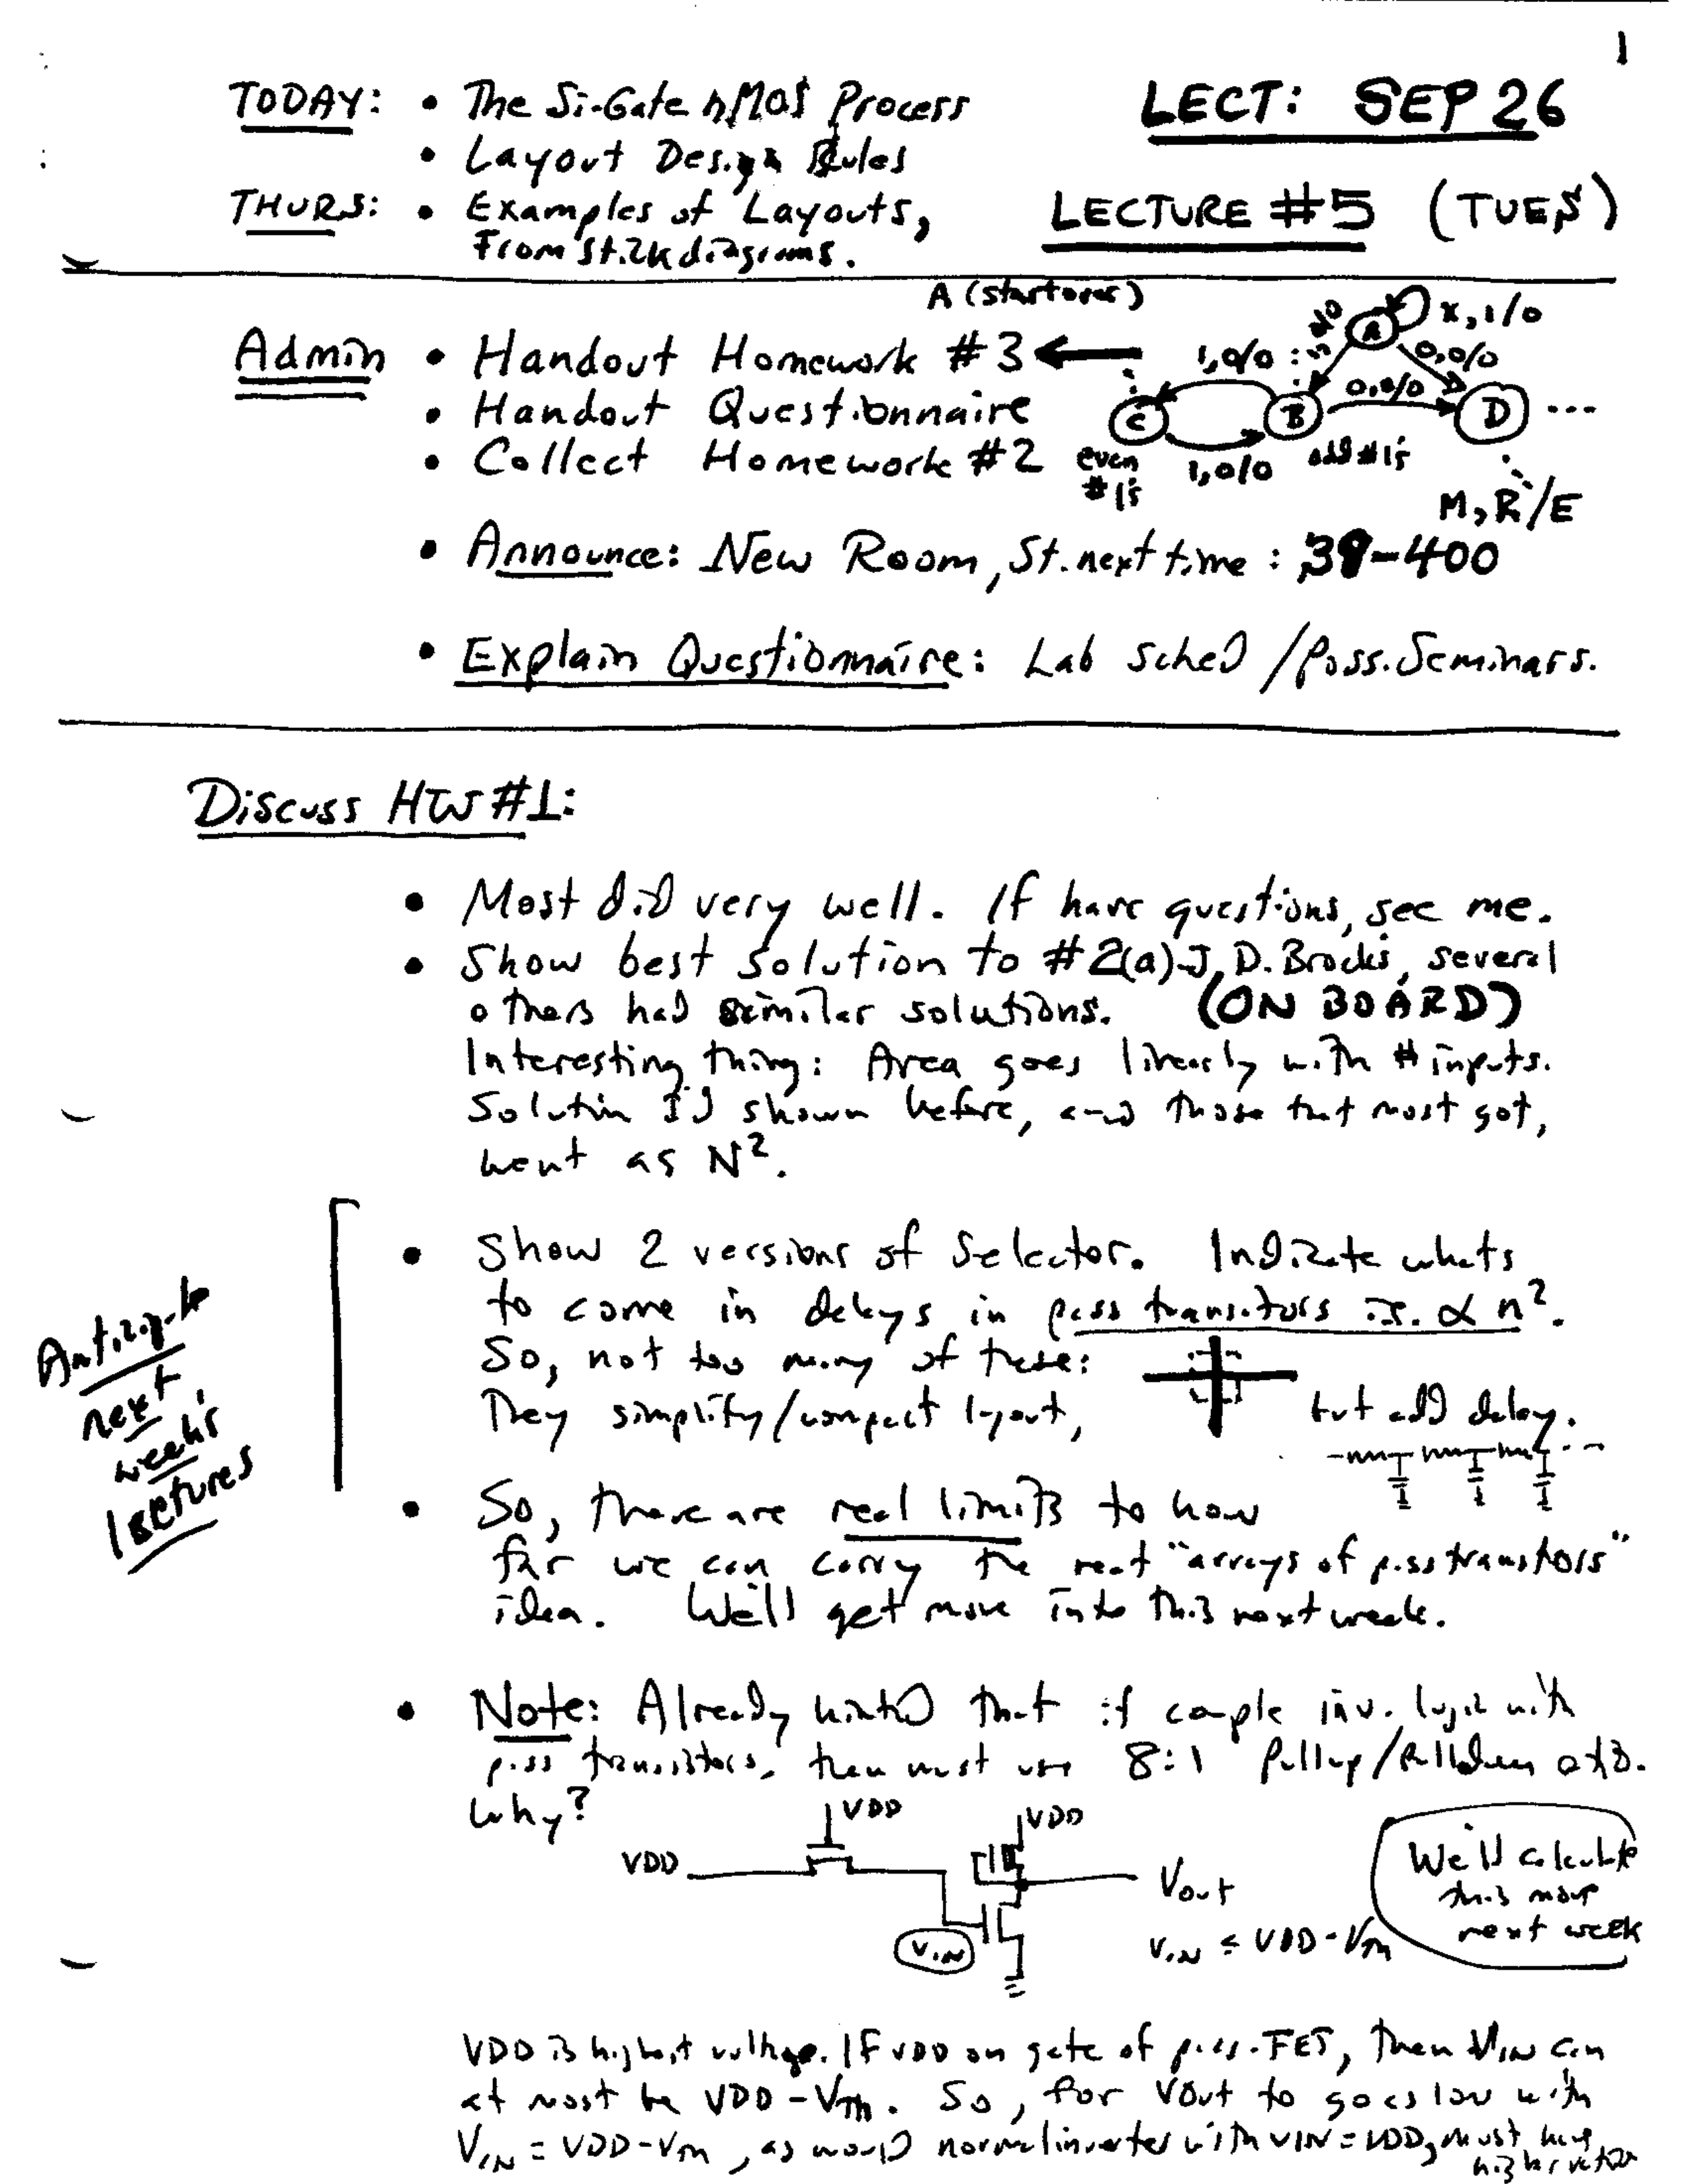 1
TODAY: • The Si-Gate nMOS Process
LECT: SEP 26
• Layout Design Rules
THURS: • Examples of Layouts,
From Stick diagrams.
LECTURE #5 (TUES)
A (start over)
Admin • Handout Homework #3
• Handout Questionnaire
• Collect Homework #2
A
X,1/0
1,0/0
0,0/0
0,0/0
C
B
D ...
even
#1's
1,0/0
odd #1's
M,R/E
• Announce: New Room, St. next time: 38-400
• Explain Questionnaire: Lab Sched /Poss. Seminars.
Discuss HW#1:
• Most did very well. If have questions, see me.
• Show best solution to #2(a)-J.D. Brock's, several
others had similar solutions. (ON BOARD)
Interesting thing: Area goes linearly with # inputs.
Solution I'd shown before, and those that most got,
went as N².
Anticipate
next
week's
lectures
• Show 2 versions of Selector. Indicate whats
to come in delays in pass transistors i.e. ∝ n².
So, not too many of these:
They simplify/compact layout,
but add delay.
• So, there are real limits to how
far we can carry the neat "arrays of pass transistors"
idea. We'll get more into this next week.
• Note: Already hinted that if couple inv. logic with
pass transistors, then must use 8:1 Pullup/Pulldown
Why?
VDD
VDD
VDD
Vout
VIN
VIN ≤ VDD-VTh
We'll calculate
this more
next week
VDD is highest voltage. IF VDD on gate of pass-FET, then VIN can
at most be VDD-VTh. So, for VOut to goes low with
VIN = VDD-VTh, as would normal inverter with VIN = VDD, must have
higher ratio